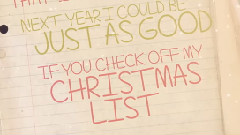 NEXT YEAR I COULD BE
JUST AS GOOD
IF YOU CHECK OFF MY
CHRISTMAS
LIST